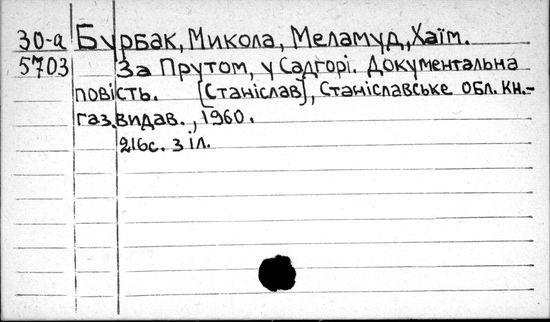 30-а Бурбак, Микола, Меламуд, Хаїм.
5703 За Прутом, у Садгорі. Документальна
повість. [Станіслав], Станіславське обл. кн.-
газ.видав., 1960.
216с. з іл.